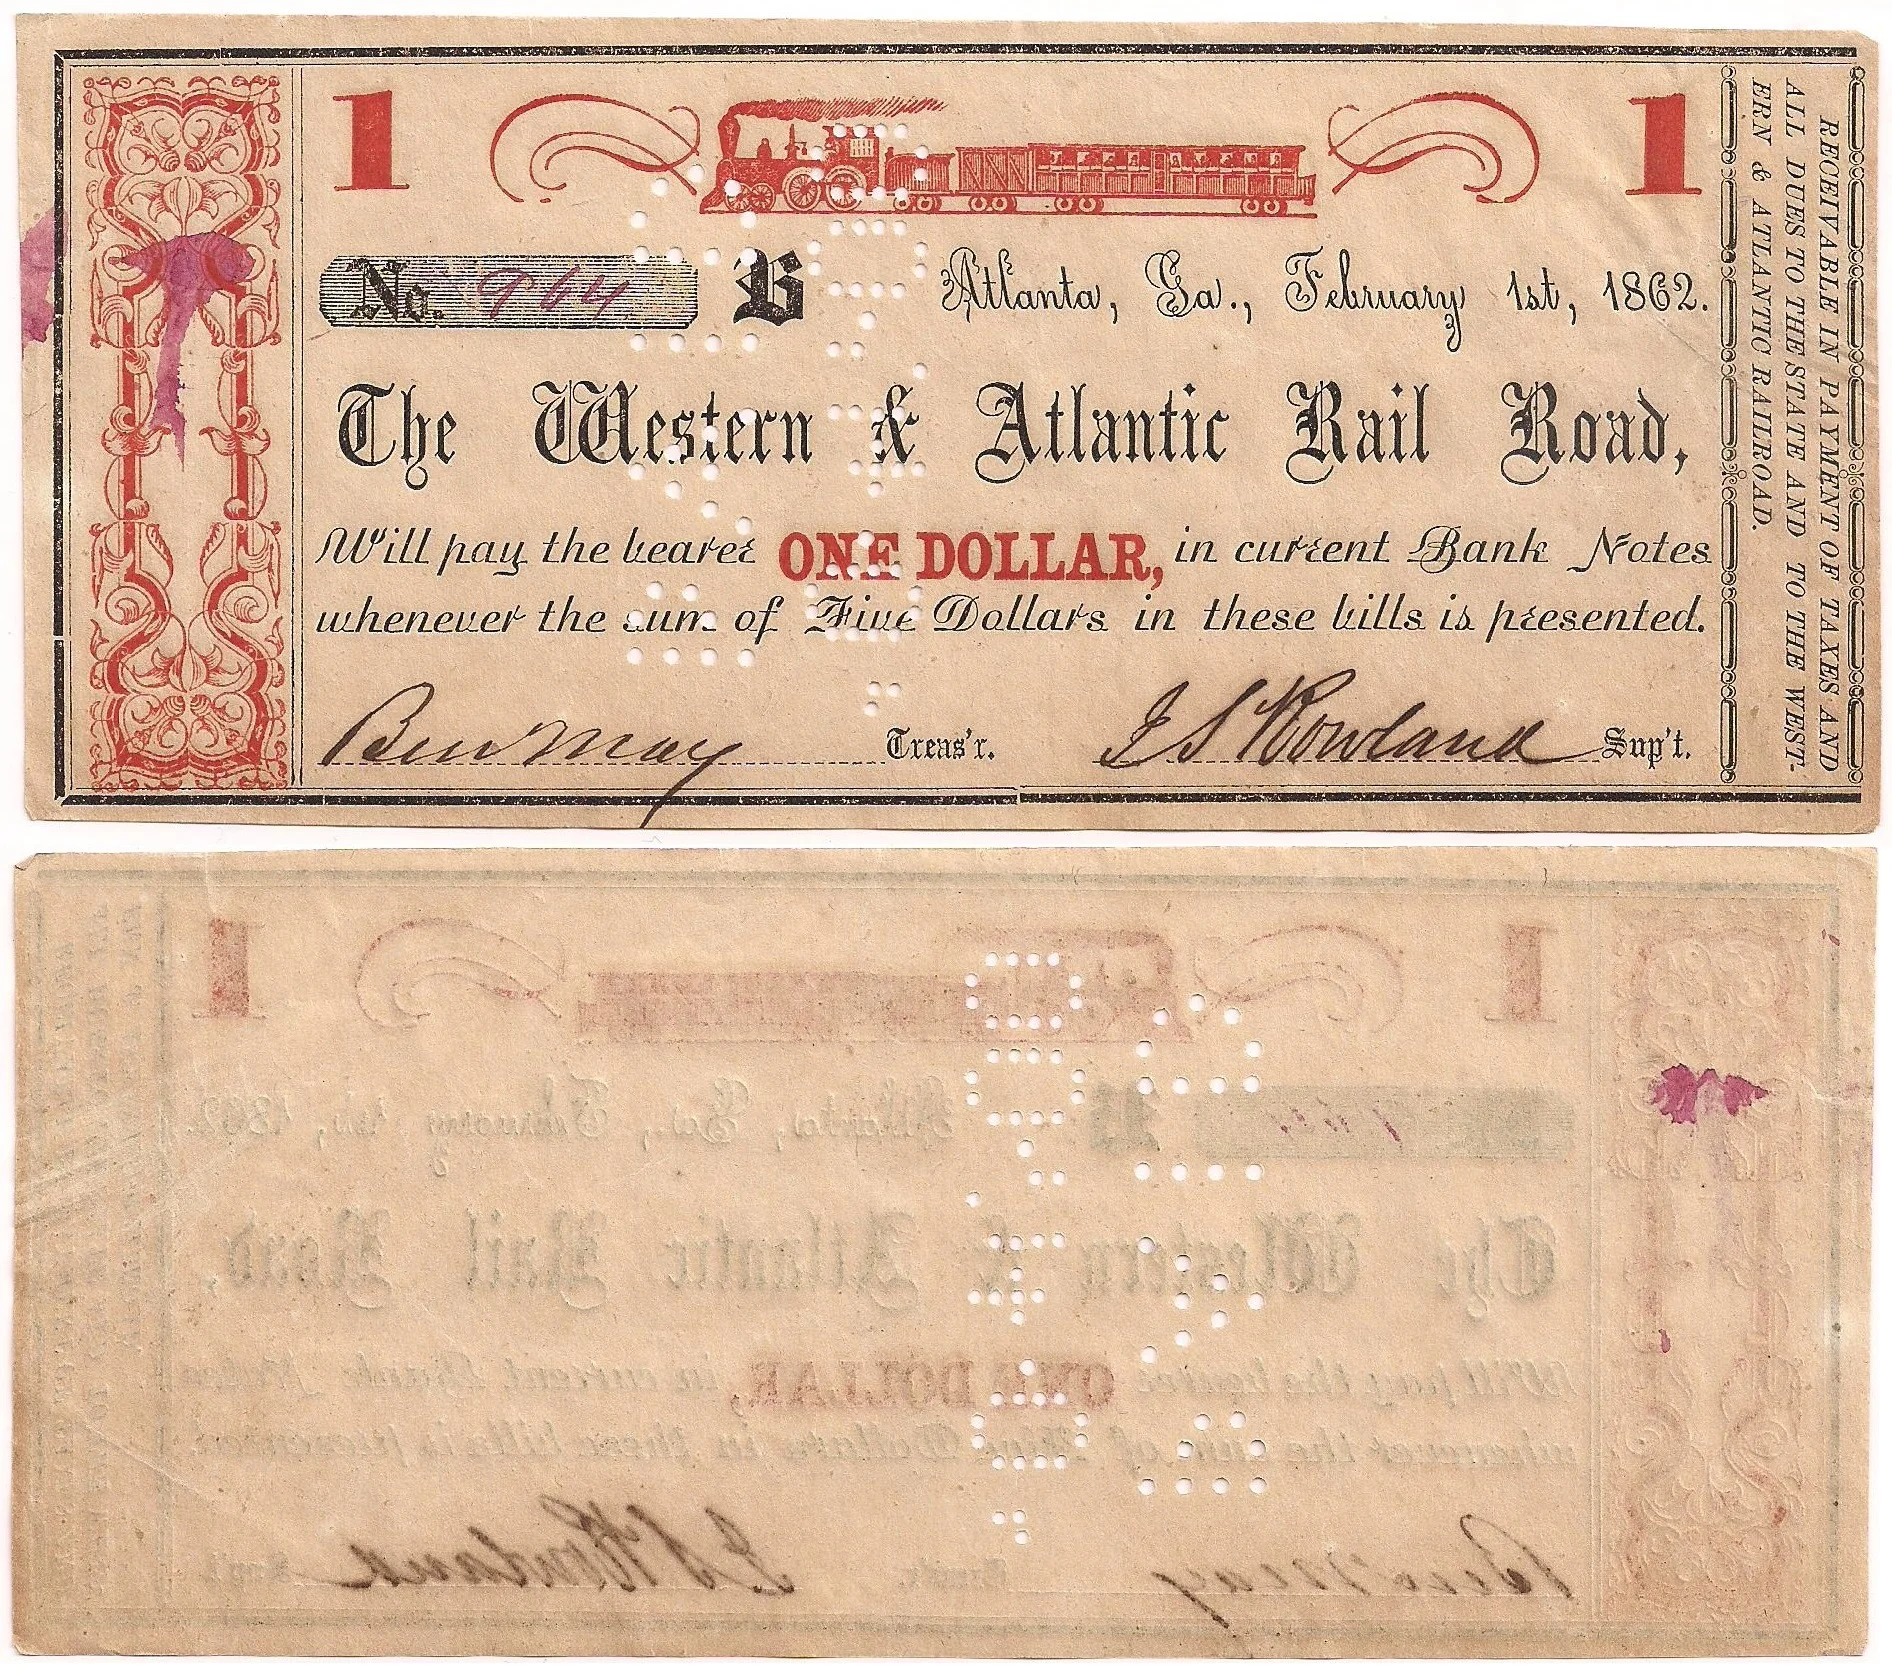 1 1
No. 964 B Atlanta, Ga., February 1st, 1862.
The Western & Atlantic Rail Road,
Will pay the bearer ONE DOLLAR, in current Bank Notes
whenever the sum of Five Dollars in these bills is presented.
Ben May Treas'r. J S Rowland Sup't.
RECEIVABLE IN PAYMENT OF TAXES AND
ALL DUES TO THE STATE AND TO THE WEST-
ERN & ATLANTIC RAILROAD.